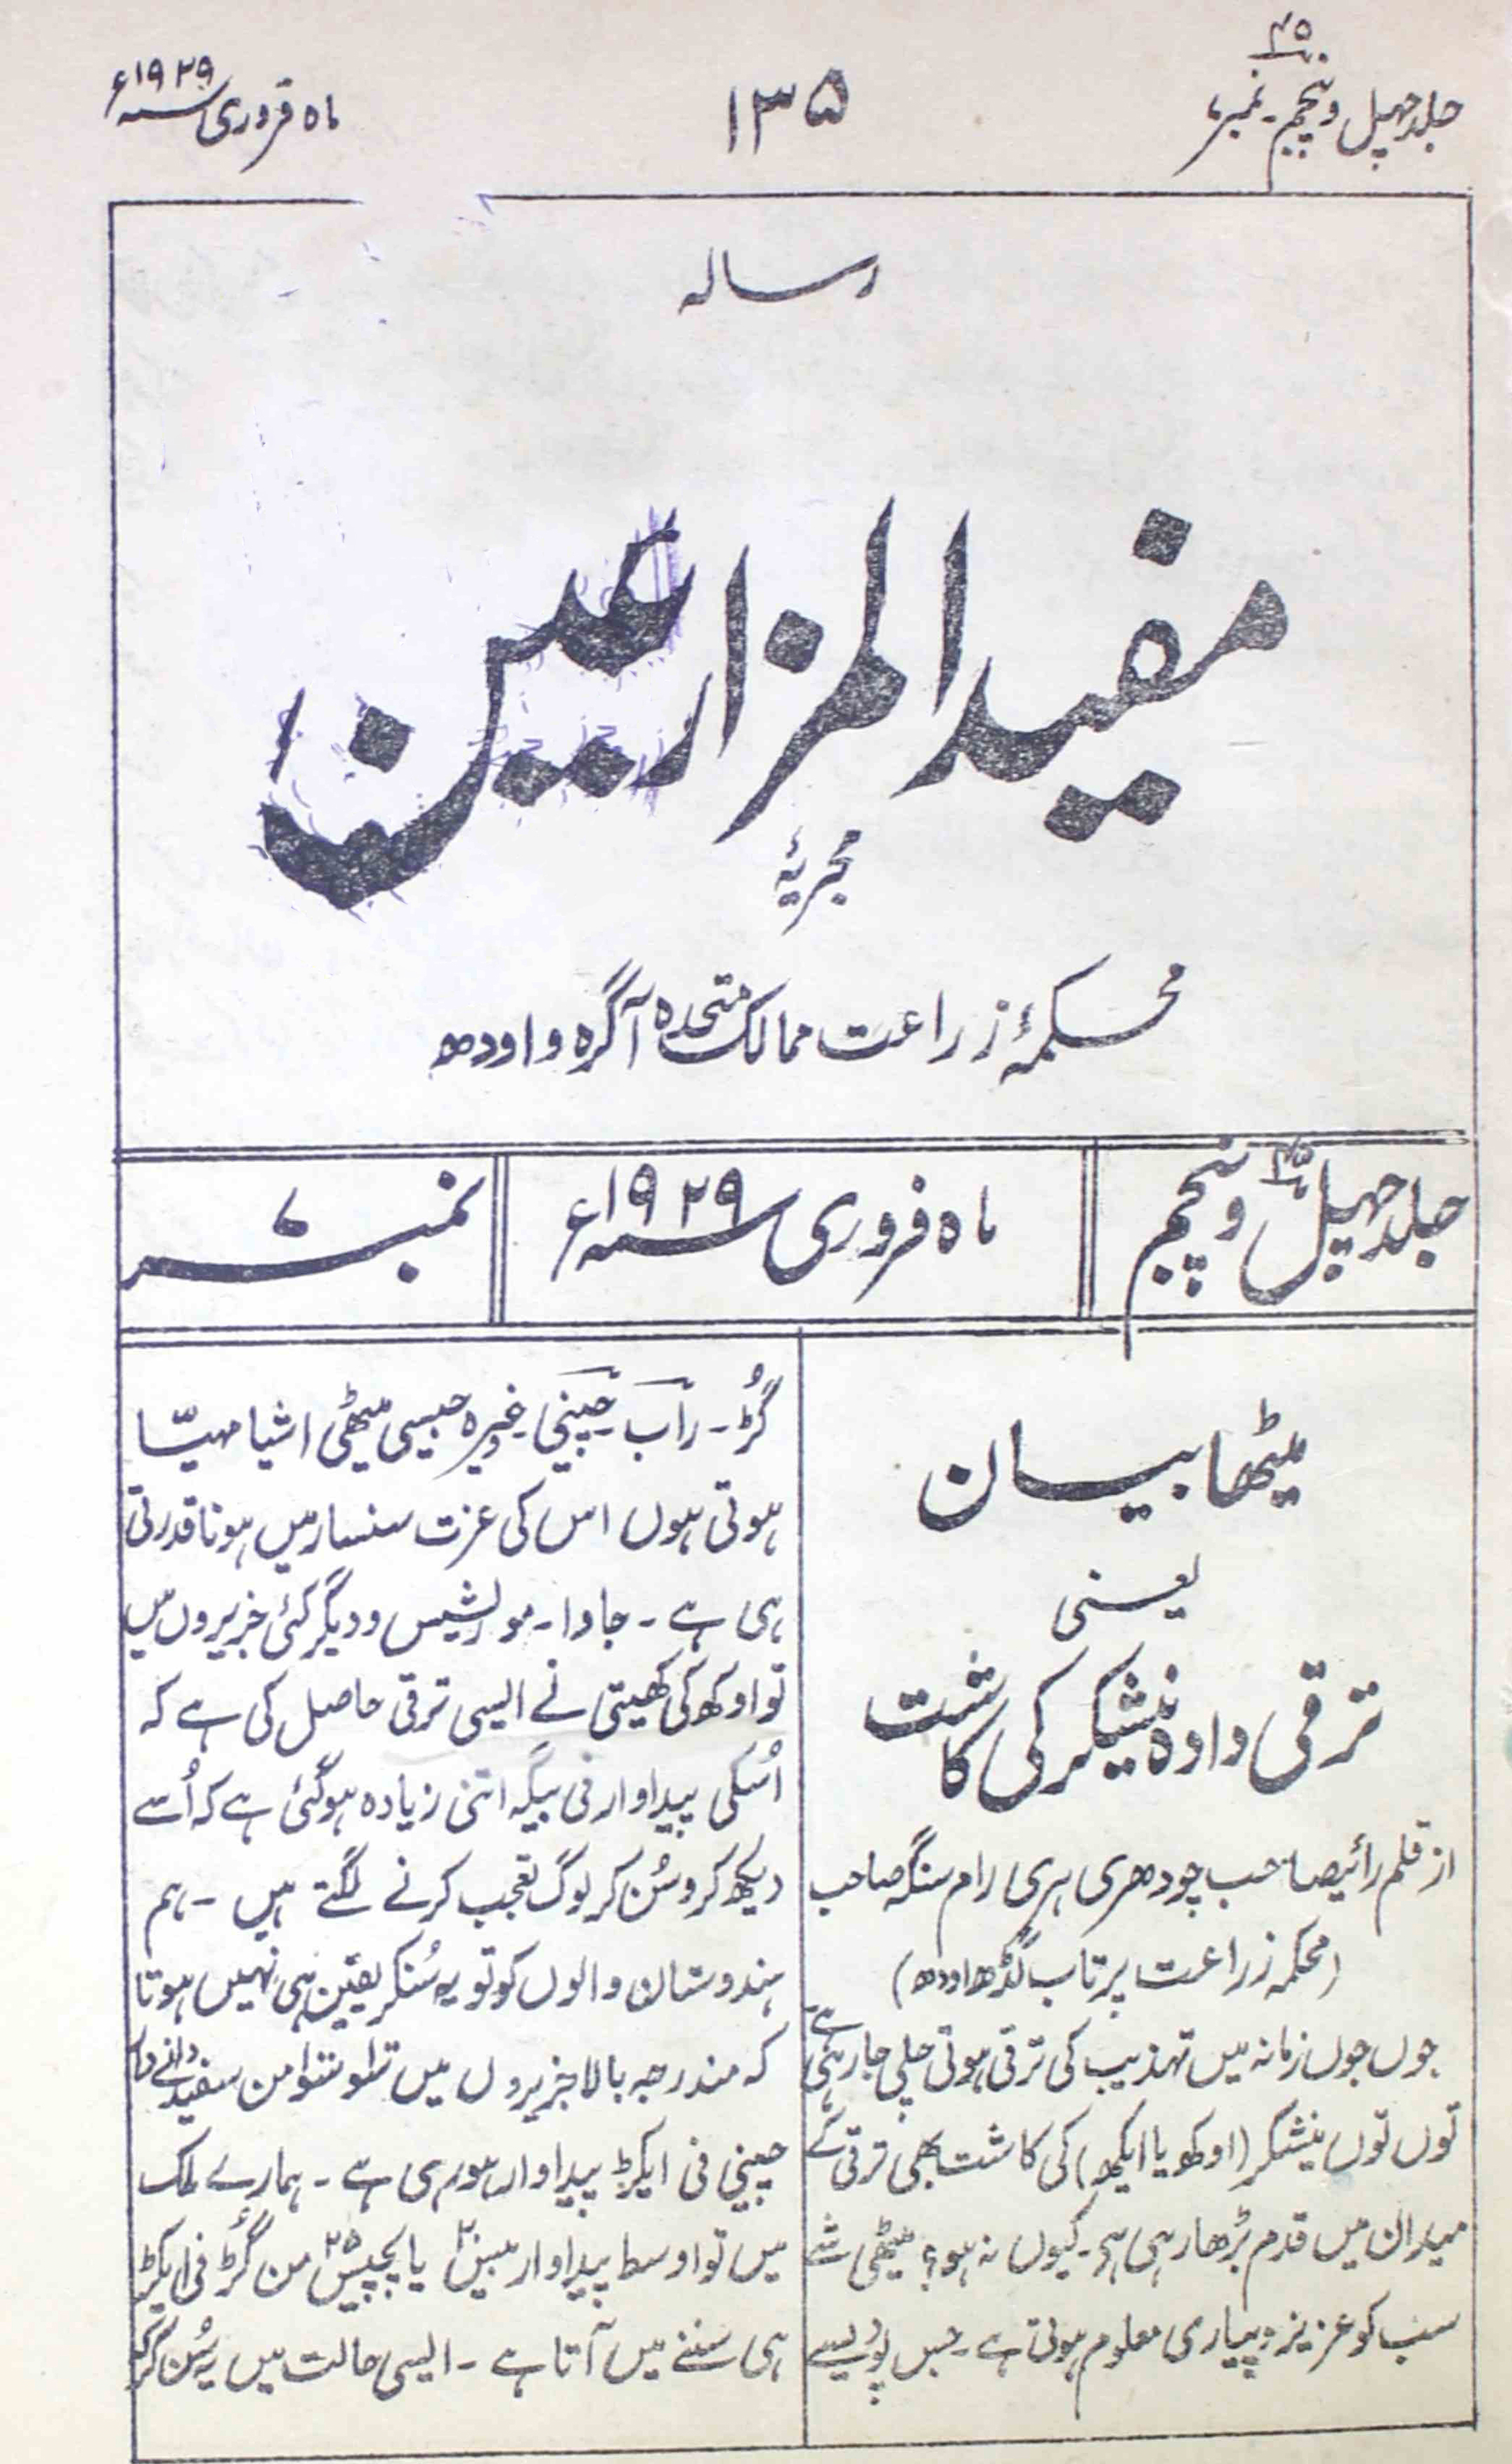 جلد چہل و پنجم۔ نمبر ۷
۴۵
۱۳۵
ماہ فروری سنہ ۱۹۲۹ء
رسالہ
مفید المزارعین
مجریۂ
محکمۂ زراعت ممالک متحدہ آگرہ و اودھ
جلد چہل و پنجم ۴۵
ماہ فروری سنہ ۱۹۲۹ء
نمبر ۷
میٹھا بیان
یعنی
ترقی دادہ نیشکر کی کاشت
از قلم رائیصاحب چودھری ہری رام سنگہ صاحب
(محکمہ زراعت پرتاب گڈھ اودھ)
جوں جوں زمانہ میں تہذیب کی ترقی ہوتی چلی جارہی ہے
توں توں نیشکر (اوکھ یا ایکھ) کی کاشت بھی ترقی کے
میدان میں قدم بڑھا رہی ہی۔ کیوں نہ ہو؟ میٹھی شے
سب کو عزیز و پیاری معلوم ہوتی ہے۔ جس پودے سے
گُڑ۔ راب۔ چینی۔ وغیرہ جیسی میٹھی اشیا مہیّا
ہوتی ہوں اس کی عزت سنسار میں ہونا قدرتی
ہی ہے۔ جاوا۔ موریشیس و دیگر کئی جزیروں میں
تو اوکھ کی کھیتی نے ایسی ترقی حاصل کی ہے کہ
اُسکی پیداوار فی بیگہ اتنی زیادہ ہوگئی ہے کہ اُسے
دیکھ کر و سُن کر لوگ تعجب کرنے لگتے ہیں۔ ہم
ہندوستان والوں کو تو یہ سُنکر یقین ہی نہیں ہوتا
کہ مندرجہ بالا جزیروں میں سَو سَوا من سفید دانے دار
چینی فی ایکڑ پیداوار ہورہی ہے۔ ہمارے ملک
میں تو اوسط پیداوار بیس ۲۰ یا پچیس ۲۵ من گُڑ فی ایکڑ
ہی سننے میں آتا ہے۔ ایسی حالت میں یہ سُن کر